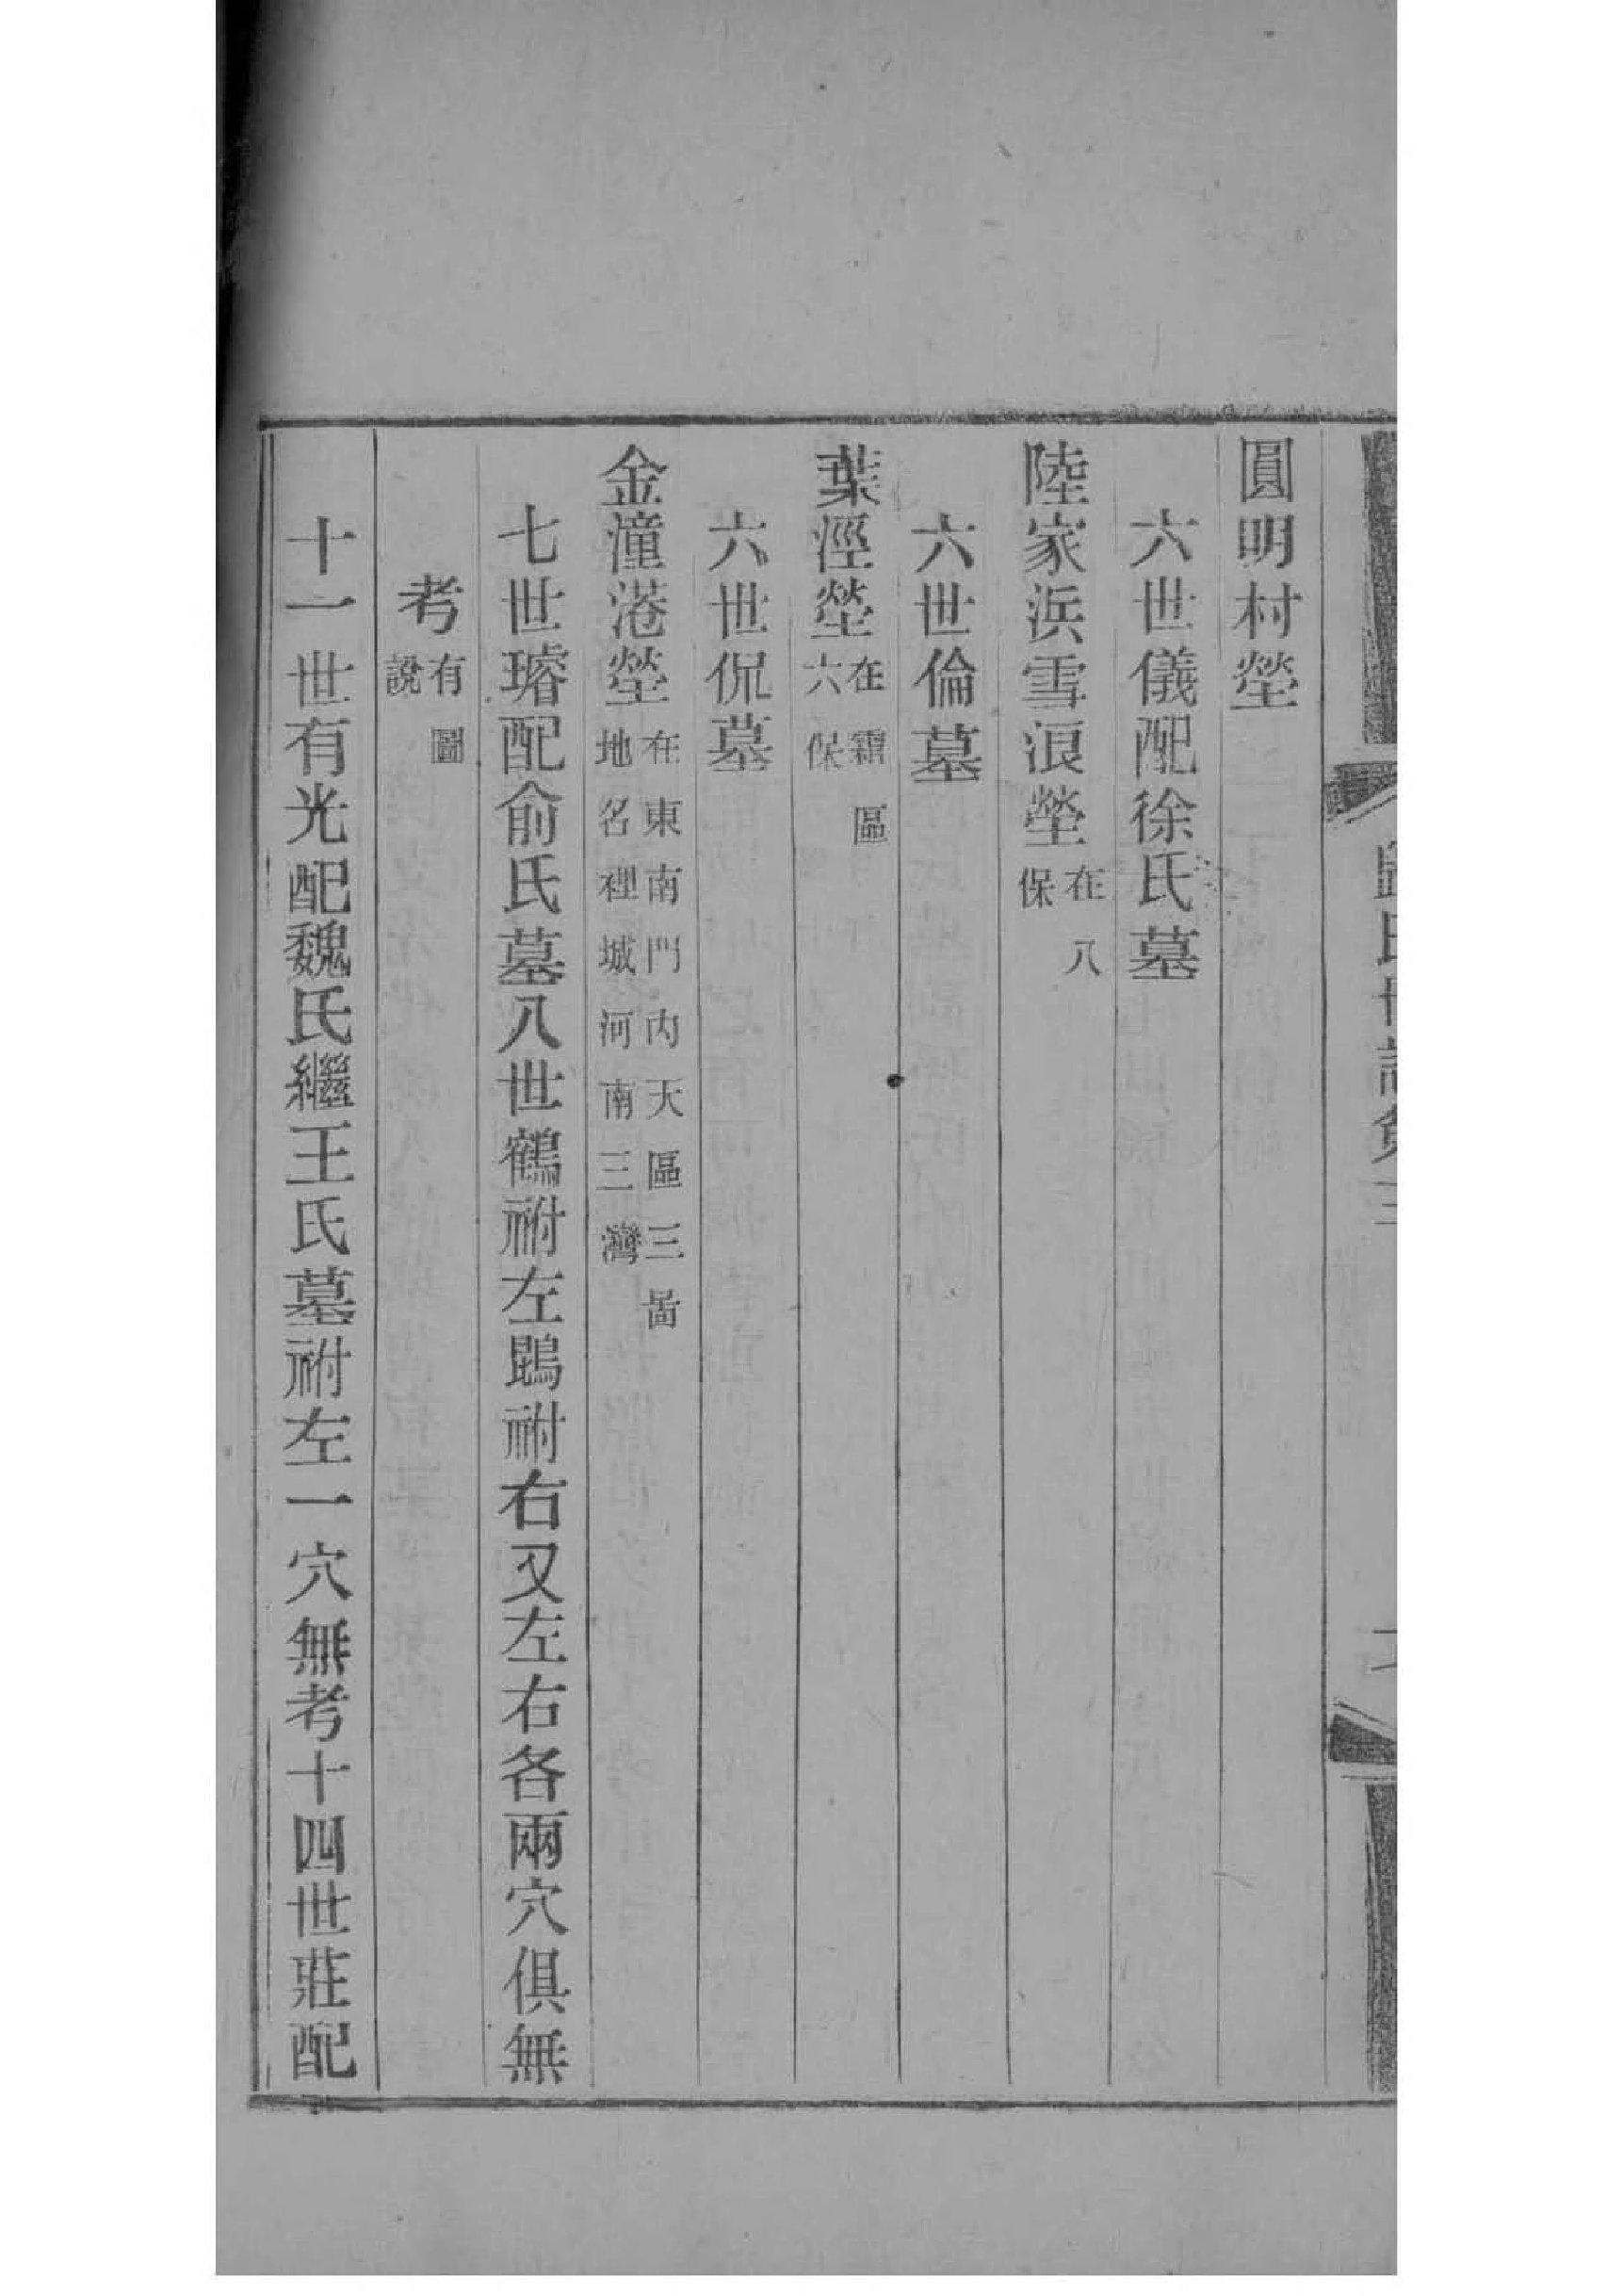 圓明村塋
六世儀配徐氏墓
陸家浜雪浪塋在八保
六世倫墓
葉涇塋在霜區六保
六世侃墓
金潼港塋在東南門內天區三啚地名裡城河南三灣
七世璿配俞氏墓八世鶴祔左鵾祔右又左右各兩穴俱無
考有圖說
十一世有光配魏氏繼王氏墓祔左一穴無考十四世莊配